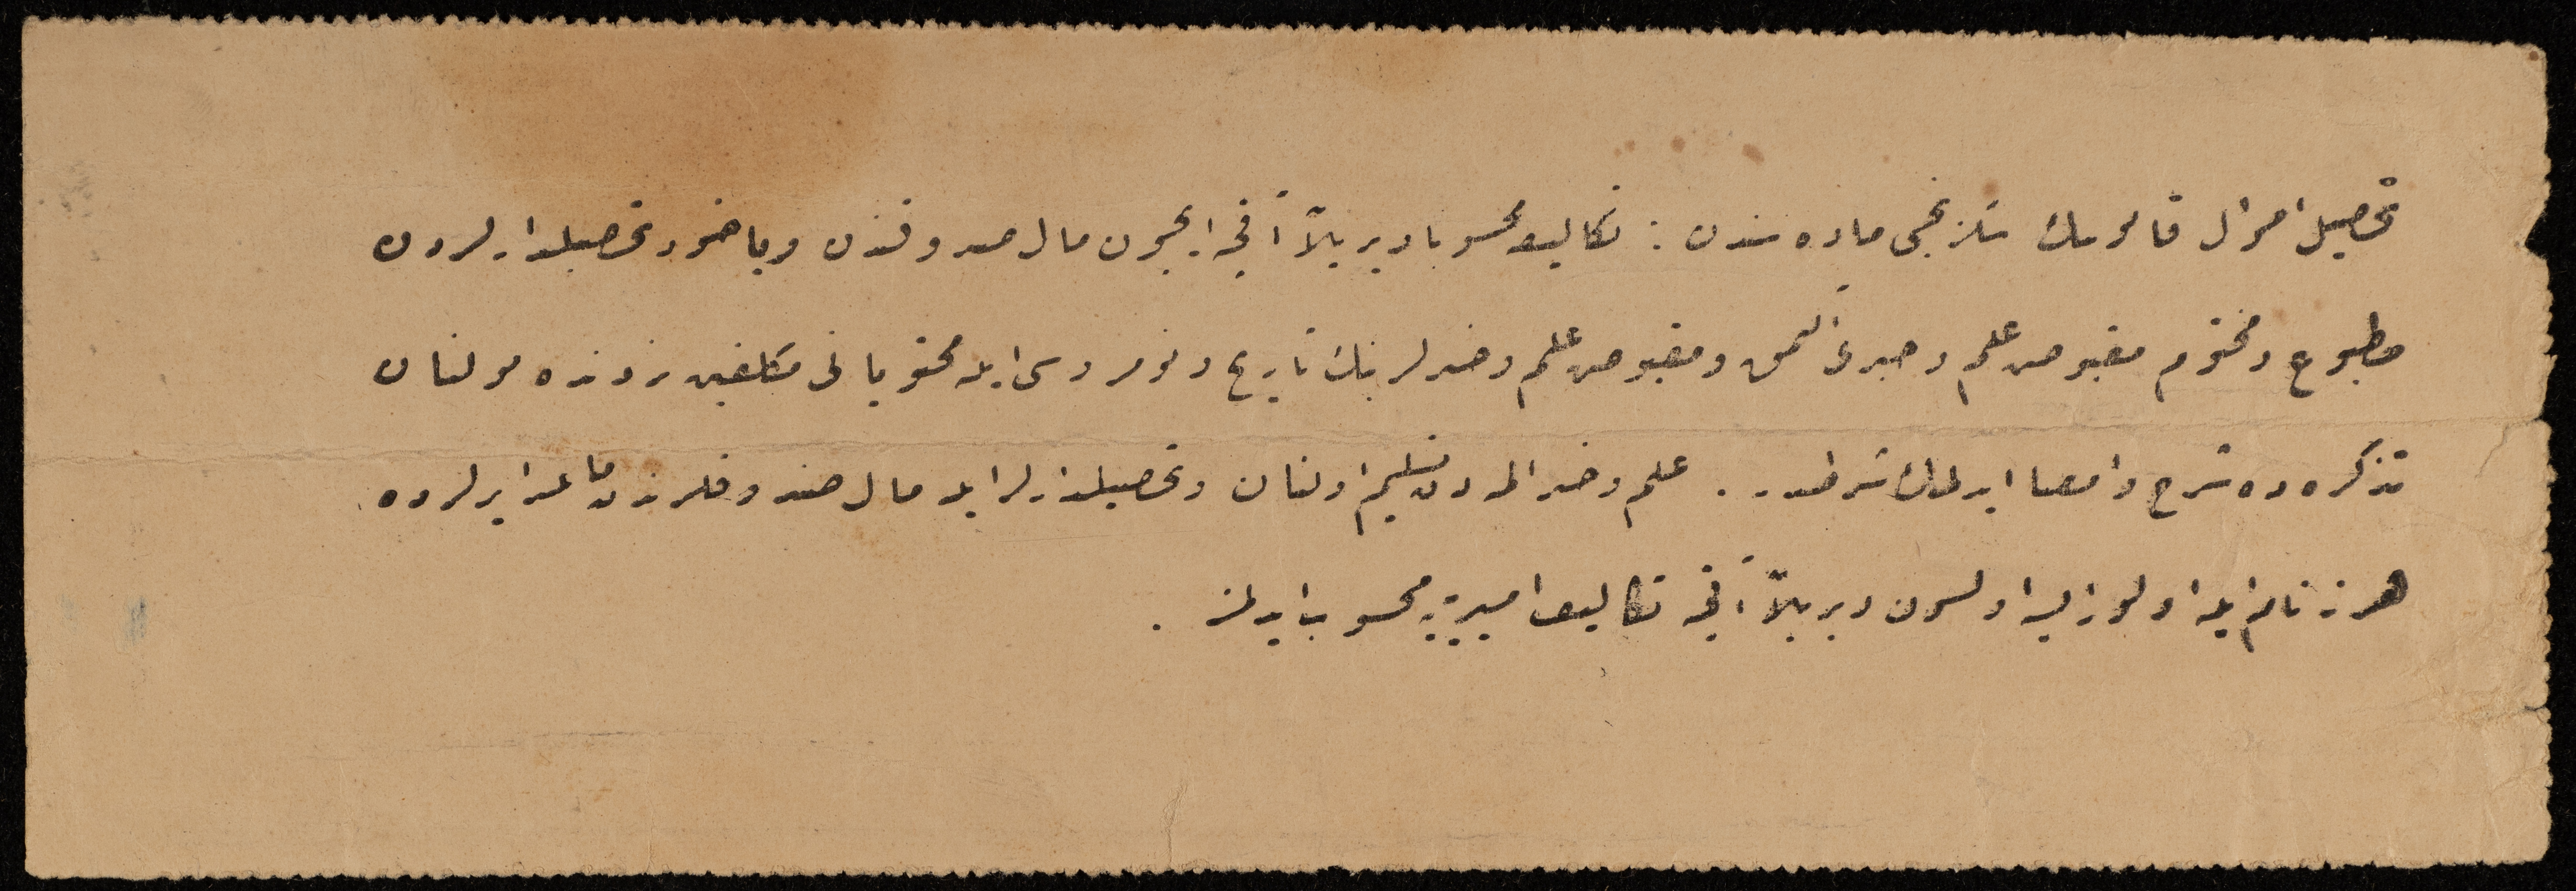 تحصیل اموال قانوننك سکزنجی ماده سندن : تکالیفه محسوبا ویریلان آقچه ایچون مال صندوقندن ویاخود تحصیلدارلردن
مطبوع ومختوم مقبوض علم وخبری آلمق ومقبوض علم وخبرلرینك تاریخ ونومروسی ایله محتویاتی مکلفین نزدنده بولنان
تذکره ده شرح وامضا ایدلمك شرطدر . علم وخبر المه دن تسلیم اولنان وتحصیلدارلر ایله مال صندوقلرندن ماعدا یرلرده
هر نه نام ایله اولورایسه اولسون ویریلان آقچه تکالیف امیریه یه محسوب ایدلمز .